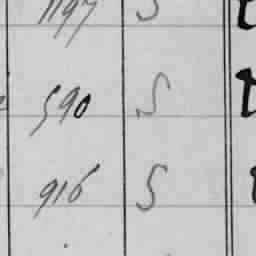 1197 S
590 S
916 S